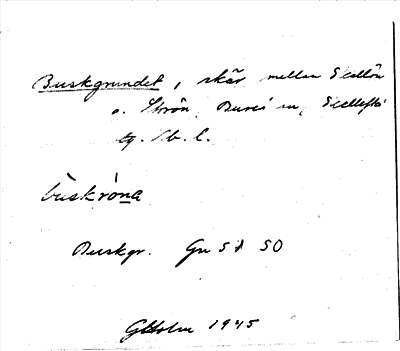 Buskgrundet, skär mellan
o. Storön, Bureå sn, Skellefteå
tg. Vb. l.
bùskróna
Buskgr. Gn S d 50
GHolm 1945